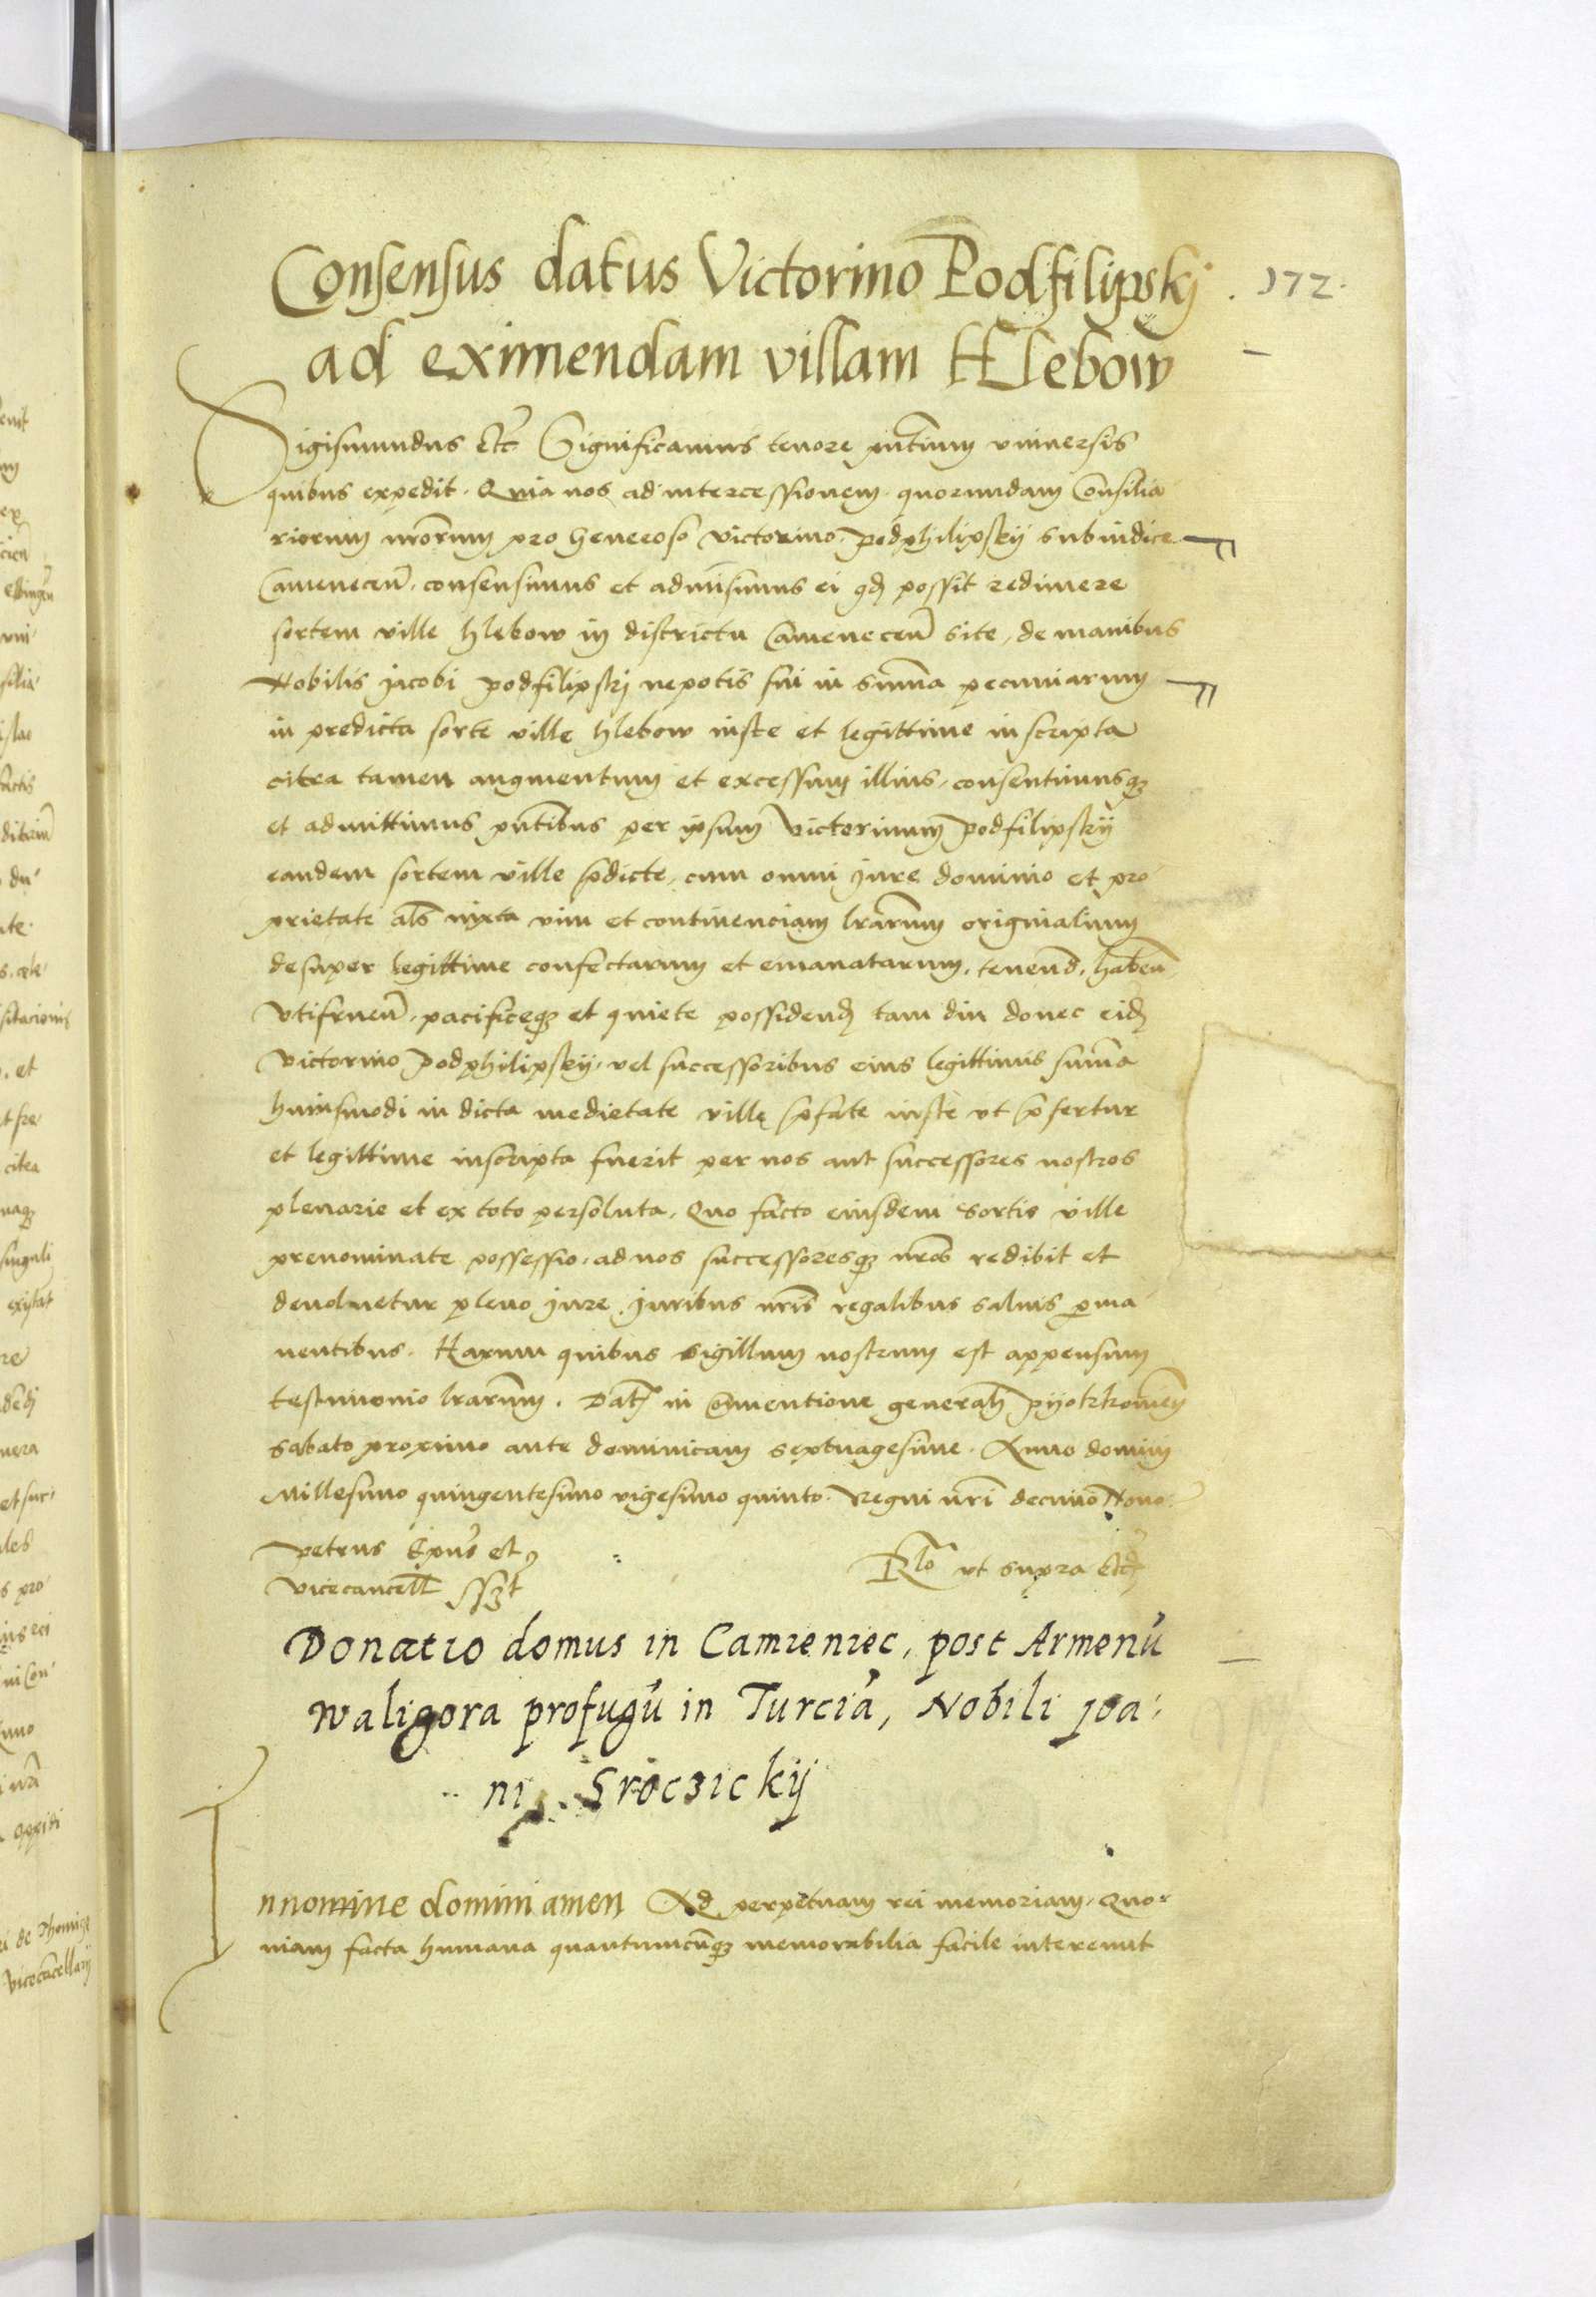 Consensus datus Victorino Podfilipskj . 172.
ad eximendam villam Hlebow
Sigismundus Etc̃ Significamus tenore pñtium vniuersis
quibus expedit. Quia nos ad intercessionem quorundam Consilia
riorum nr̃orum pro Generoso victorino podphilipskij subiudice
Camenecen̄. consensimus et admisimus ei qđ possit redimere
sortem ville hlebow in districtu Camenecen̄ site, de manibus
Nobilis jacobi podfilipskj nepotis sui in sum̄a pecuniarum
in predicta sorte ville hlebow iuste et legittime inscripta
citra tamen augmentum et excessum illius, consentimusqꝫ
et admittimus pñtibus per ipsum victorinum podfilipskij
eandem sortem ville p̄dicte, cum omni jure dominio et pro
prietate al̃s iuxta vim et continenciam lr̃arum originalium
desuper legittime confectarum et emanatarum, tenend̄. haben̄
vtifruen̄. pacificeqꝫ et quiete possidenđ tam diu donec eiđ
victorino podphilipskij, vel successoribus eius legittimis sum̄a
huiusmodi in dicta medietate villę p̄fate iuste vt p̄fertur
et legittime inscripta fuerit per nos aut successores nostros
plenarie et ex toto persoluta, Quo facto eiusdem sortis ville
prenominate possessio, ad nos successoresqꝫ nr̃os redibit et
deuoluetur pleno jure, juribus nr̃is regalibus saluis perma
nentibus. Harum quibus sigillum nostrum est appensum
testimonio lr̃arum. Dat̃ in Conuentione generali pyotrkowień
sabato proximo ante dominicam septuagesime. Anno domini
Millesimo quingentesimo vigesimo quinto. Regni nr̃i decimo Nono
petrus Ep̃us et
vicecancell̃ sszt
Rl̃o vt supra Etc̃
Donatio domus in Camieniec, post Armenū
Waligora profugū in Turciā, Nobili joa
ni Sroczickij
Innomine domini amen Ad perpetuam rei memoriam, Quo
niam facta humana quantumcūqꝫ memorabilia facile intereunt